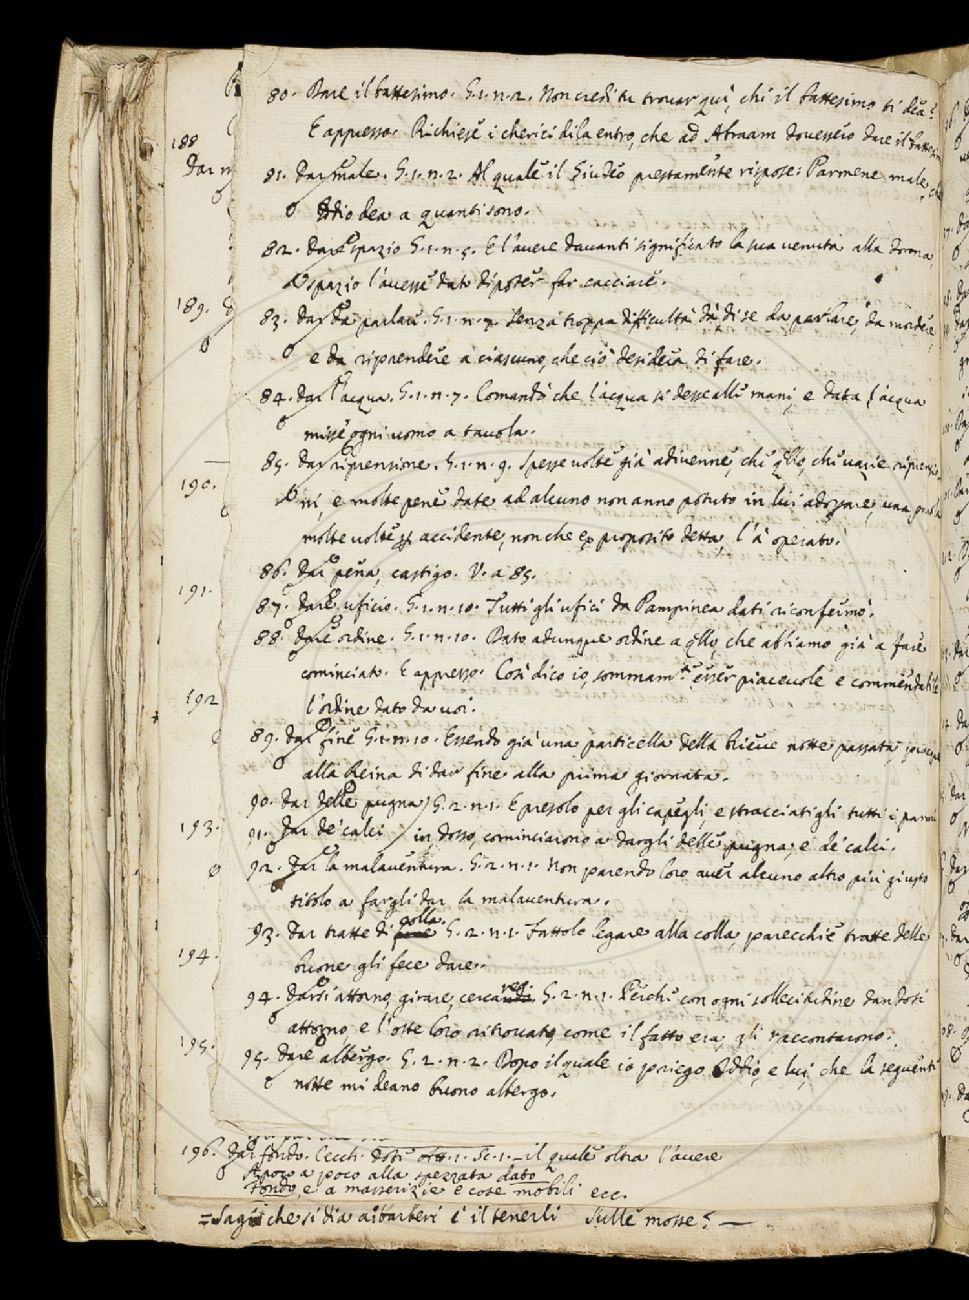 80. Dare il battesimo. G. 1. n. 2. Non credi tu trovar quì, chi il battesimo ti dea?
E appresso. Richiese i cherici di là entro, che ad Abraam dovessero dare il
188
Dar
81. Dar male. G. 1. n. 2. Al quale il Giudeo prestamente rispose: Parmene male, che
Iddio dea a quanti sono.
82. dare spazio G. 1. n. 5. E l'avere davanti significato la sua venuta alla donna,
spazio l'avesse dato di poter far cacciare.
189.
83. dar da parlare. G. 1. n. 7. Senza troppa difficultà dà di se da parlare, da mordere,
e da riprendere a ciascuno, che ciò desidera di fare.
84. dar l'acqua. G. 1. n. 7. Comandò che l'acqua si desse alle mani, e data l'acqua
misse ogni uomo a tavola.
85. dar riprensione. G. 1. n. 9. Spesse volte già adivenne, che qllo, che varie riprensio
190.
ni, e molte pene date ad alcuno non anno potuto in lui adoprare, una
molte volte p accidente, non che ex proposito detta, l'à operato.
86. dar pena, castigo. V. a 85.
191.
87. dare uficio. G. 1. n. 10. Tutti gli ufici da Pampinea dati riconfermò.
88. dare ordine. G. 1. n. 10. Dato adunque ordine a qllo, che abbiamo già a fare
cominciato. E appresso. Così dico io, sommam.te esser piacevole e commendabile
192
l'ordine dato da voi.
89. dar fine G. 1. n. 10. Essendo già una particella della brieve notte passata,
alla Reina di dar fine alla prima giornata.
90. dar delle pugna) G. 2. n. 1. E presolo per gli capegli e stracciatigli tutti i panni
193.
91. dar de' calci in dosso, cominciarono a dargli delle pugna, e de' calci.
92. dar la malaventura. G. 2. n. 1. Non parendo loro aver alcuno altro più giusto
titolo a fargli dar la malaventura.
93. dar tratte di colla. G. 2. n. 1. Fattolo legare alla colla, parecchie tratte delle
194.
buone gli fece dare.
94. darsi attorno, girare, cercare. G. 2. n. 1. Perchè con ogni sollecitudine dandosi
attorno e l'oste loro ritrovato, come il fatto era, gli raccontarono.
195.
95. dare albergo. G. 2. n. 2. Dopo il quale io priego Iddio, e lui, che la seguente
notte mi deano buono albergo.
196. dar fondo. Cecchi Dote 1. Sc. 1. — il quale oltra l'avere
A poco a poco alla spezzata dato
Fondo, e a masserizie e cose mobili ecc.
= che si dia a' barberi è il tenerli sulle mosse? —